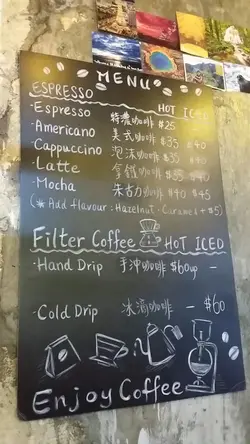 MENU
ESPRESSO HOT ICED
·Espresso 特濃咖啡 $25
·Americano 美式咖啡 $35 $40
·Cappuccino 泡沫咖啡 $35 $40
·Latte 拿鐵咖啡 $35 $40
·Mocha 朱古力咖啡 $40 $45
(* Add flavour: Hazelnut · Caramel + $5)
Filter Coffee HOT ICED
·Hand Drip 手沖咖啡 $60up —
·Cold Drip 冰滴咖啡 — $60
Enjoy Coffee